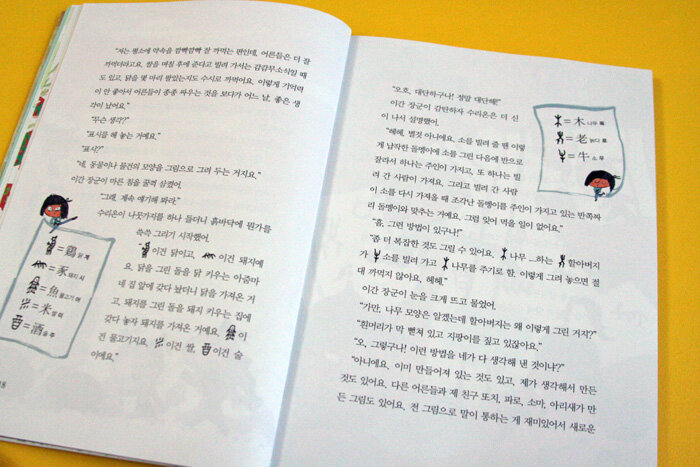 "저는 평소에 약속을 깜빡깜빡 잘 까먹는 편인데, 어른들은 더 잘
까먹더라고요. 쌀을 며칠 후에 준다고 빌려 가서는 감감무소식일 때
도 있고, 닭을 몇 마리 줬있는지도 수시로 까먹어요. 이렇게 기억력
이 안 좋아서 어른들이 종종 싸우는 것을 보다가 어느 날, 좋은 생
각이 났어요."
"무슨 생각?"
"표시를 해 놓는 거예요."
"표시?"
"네, 동물이나 물건의 모양을 그림으로 그려 두는 거지요."
이간 장군이 마른 침을 꿀꺽 삼켰어.
"그래, 계속 얘기해 봐라."
수리온이 나뭇가지를 하나 들더니 흙바닥에 뭔가를
쓱쓱 그리기 시작했어.
이건 닭이고, 이건 돼지예
요. 닭을 그린 돌을 닭 키우는 아줌마
네 집 앞에 갖다 놨더니 닭을 가져온 거
고, 돼지를 그린 돌을 돼지 키우는 집에
갖다 놓자 돼지를 가져온 거예요. 이
건 물고기지요. 이건 쌀, 이건 술
이에요."
=鷄 닭 계
=豕 돼지 시
=魚 물고기 어
=米 쌀 미
=酒 술 주
18
"오호, 대단하구나! 정말 대단해!"
이간 장군이 감탄하자 수리온은 더 신
이 나서 설명했어.
"헤헤, 별것 아니에요. 소를 빌려 줄 땐 이렇
게 납작한 돌멩이에 소를 그린 다음에 반으로
잘라서 하나는 주인이 가지고, 또 하나는 빌
려 간 사람이 가져요. 그리고 빌려 간 사람
이 소를 다시 가져올 때 조각난 돌멩이를 주인이 가지고 있는 반쪽짜
리 돌멩이와 맞추는 거예요. 그럼 잊어 먹을 일이 없어요."
"흠, 그런 방법이 있구나!"
"좀 더 복잡한 것도 그릴 수 있어요. 나무 …하는 할아버지
가 소를 빌려 가고 나무를 주기로 함. 이렇게 그려 놓으면 절
대 까먹지 않아요, 헤헤."
이간 장군이 눈을 크게 뜨고 물었어.
"가만, 나무 모양은 알겠는데 할아버지는 왜 이렇게 그린 거지?"
"흰머리가 막 뻗쳐 있고 지팡이를 짚고 있잖아요."
"오, 그렇구나! 이런 방법을 네가 다 생각해 낸 것이냐?"
"아니에요. 이미 만들어져 있는 것도 있고, 제가 생각해서 만든
것도 있어요. 다른 어른들과 제 친구 또치, 파로, 소마, 아리새가 만
든 그림도 있어요. 전 그림으로 말이 통하는 게 재미있어서 새로운
=木 나무 목
=老 늙다 로
=牛 소 우